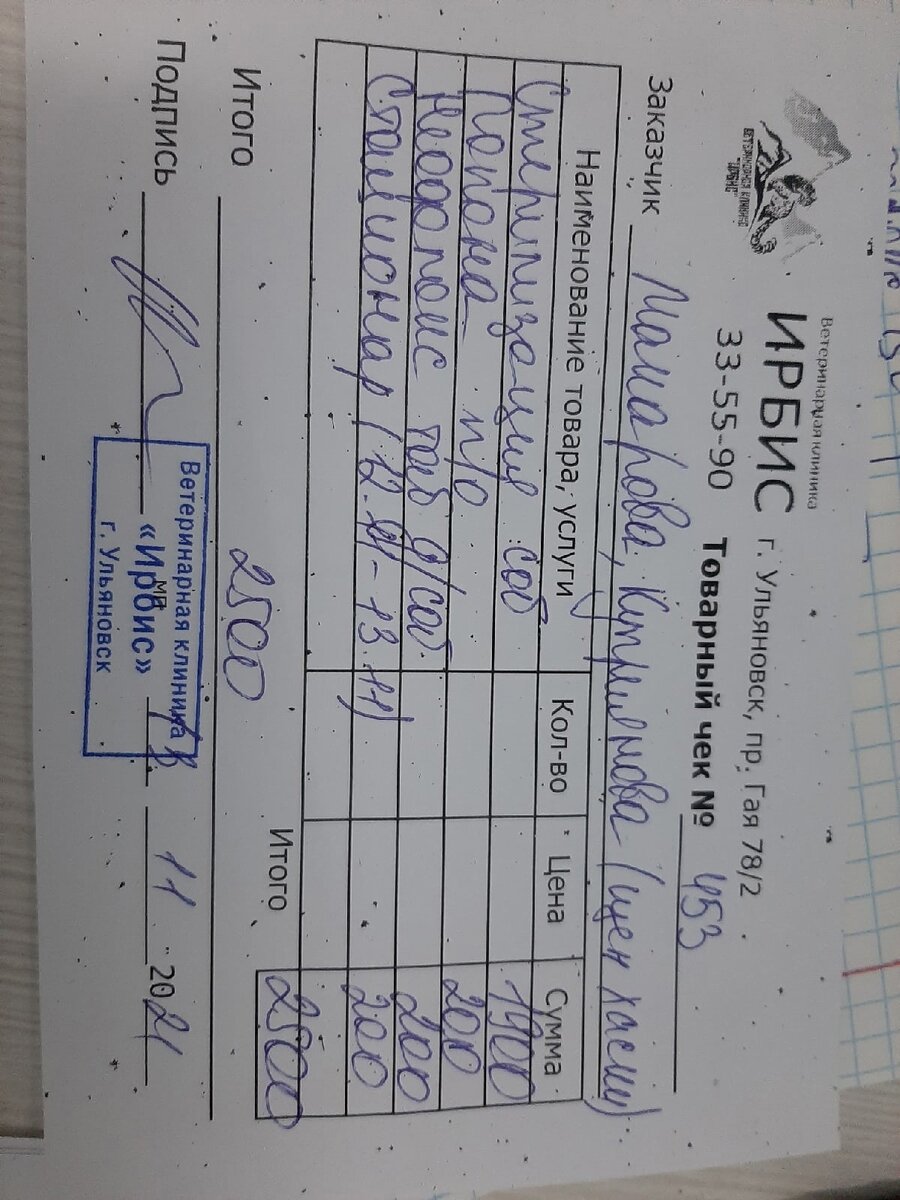 Ветеринарная клиника
ИРБИС г. Ульяновск, пр. Гая 78/2
ВЕТЕРИНАРНАЯ КЛИНИКА
"ИРБИС"
33-55-90 Товарный чек № 453
Заказчик (щен хаски)
Наименование товара, услуги Кол-во Цена Сумма
Стерилизация соб 1900
Попона п/о 200
таб д/соб. 200
Стационар (12.11-13.11) 200
Итого 2500
Итого 2500
Подпись МП 11 2021
Ветеринарная клиника
«Ирбис»
г. Ульяновск